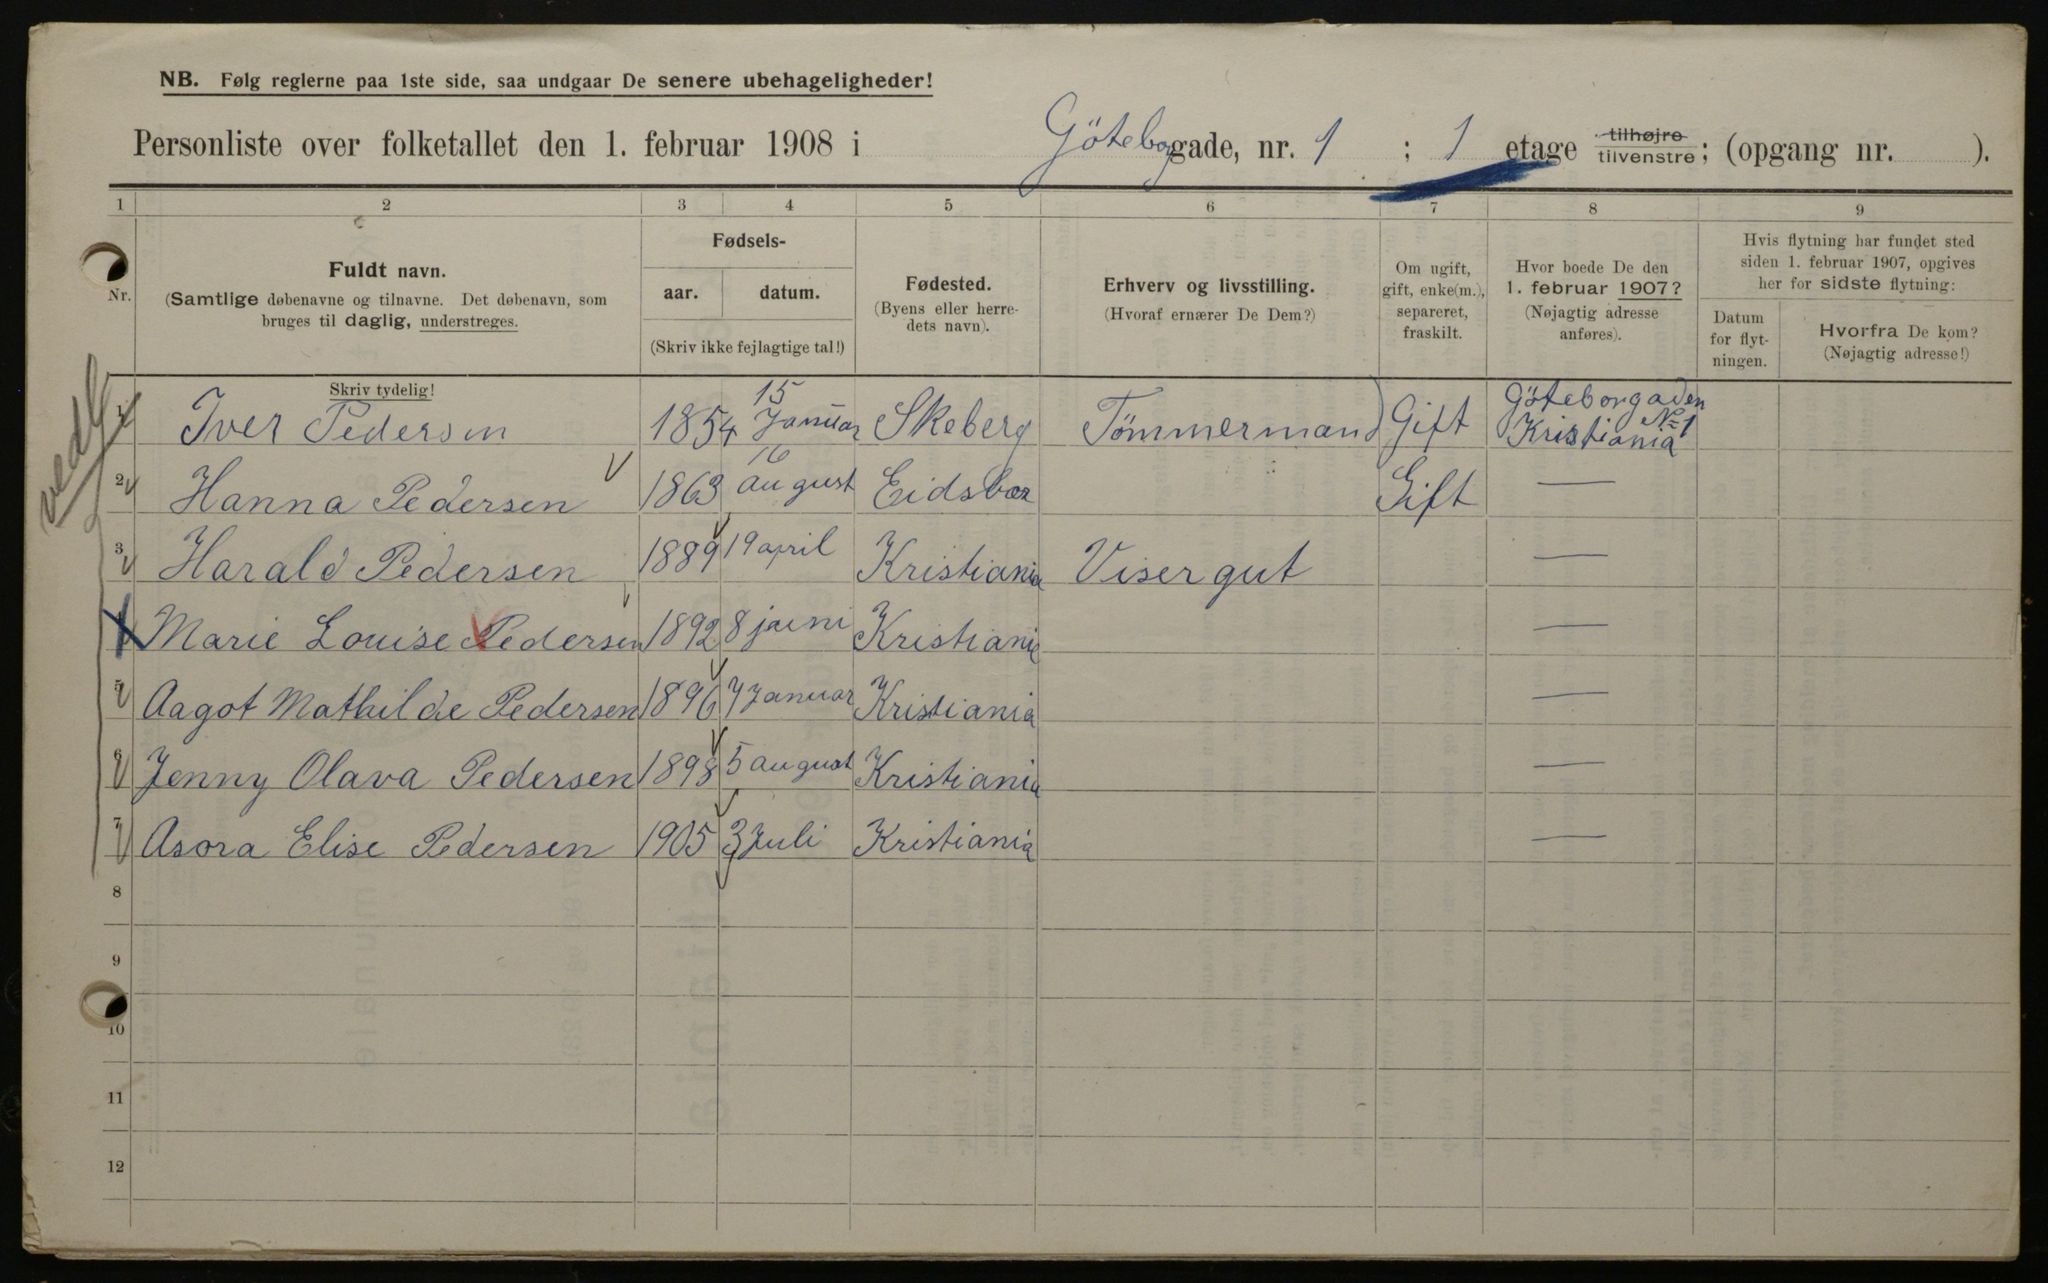 NB. Følg reglerne paa 1ste side, saa undgaar De senere ubehageligheder!
Personliste over folketallet den 1. februar 1908 i Göteborgade, nr. 1 ; 1 etage tilhøjre tilvenstre; (opgang nr. ).
1 2 3 4 5 6 7 8 9
Nr.
Fuldt navn.
(Samtlige døbenavne og tilnavne. Det døbenavn, som
bruges til daglig, understreges.
Skriv tydelig!
Fødsels-
aar. datum.
(Skriv ikke fejlagtige tal!)
Fødested.
(Byens eller herre-
dets navn).
Erhverv og livsstilling.
(Hvoraf ernærer De Dem?)
Om ugift,
gift, enke(m.),
separeret,
fraskilt.
Hvor boede De den
1. februar 1907?
(Nøjagtig adresse
anføres).
Hvis flytning har fundet sted
siden 1. februar 1907, opgives
her for sidste flytning:
Datum
for flyt-
ningen.
Hvorfra De kom?
(Nøjagtig adresse!)
vedl
1 Iver Pedersen 1854 15 Januar Skeberg Tömmermand Gift Göteborgaden No 1 Kristiania
2 Hanna Pedersen 1863 16 august Eidsber Gift —
3 Harald Pedersen 1889 19 april Kristiania Visergut —
Marie Louise Pedersen 1892 8 juni Kristiania —
5 Aagot Mathilde Pedersen 1896 7 Januar Kristiania —
6 Jenny Olava Pedersen 1898 5 august Kristiania —
7 Asora Elise Pedersen 1905 3 Juli Kristiania —
8
9
10
11
12